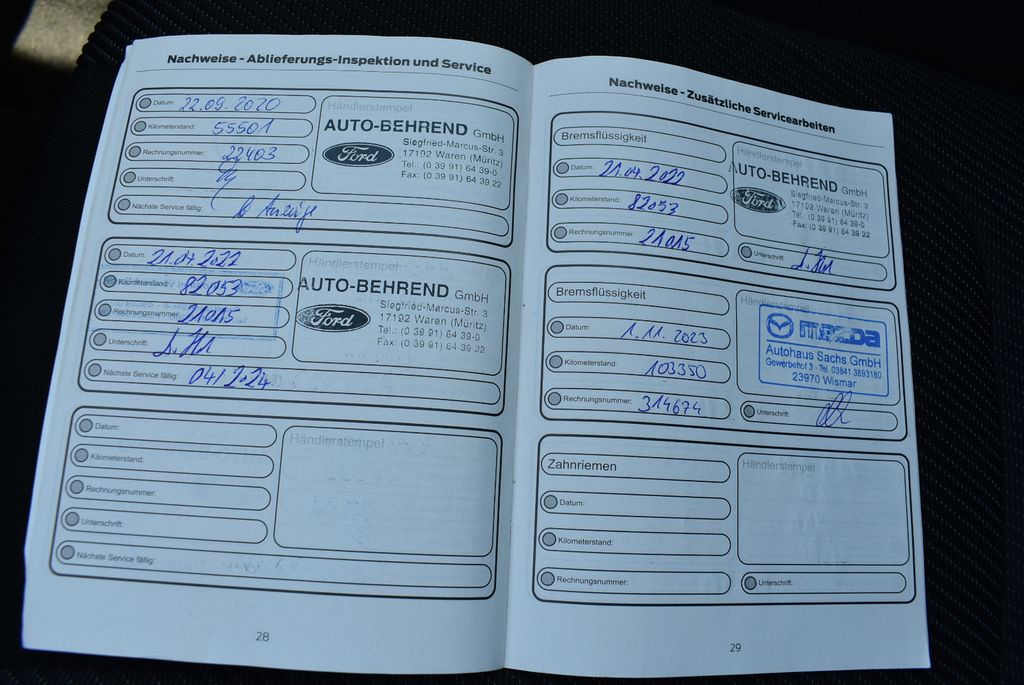 Nachweise - Ablieferungs-Inspektion und Service
Datum: 22.09.2020
Kilometerstand: 55501
Rechnungsnummer: 22403
Unterschrift:
Nächste Service fällig: lt. Anzeige
Händlerstempel
AUTO-BEHREND GmbH
Ford
Siegfried-Marcus-Str. 3
17192 Waren (Müritz)
Tel.: (0 39 91) 64 39-0
Fax: (0 39 91) 64 39 22
Datum: 21.04.2022
Kilometerstand: 82053
Rechnungsnummer: 21015
Unterschrift:
Nächste Service fällig: 04/2024
Händlerstempel
AUTO-BEHREND GmbH
Ford
Siegfried-Marcus-Str. 3
17192 Waren (Müritz)
Tel.: (0 39 91) 64 39-0
Fax: (0 39 91) 64 39 22
Datum:
Kilometerstand:
Rechnungsnummer:
Unterschrift:
Nächste Service fällig:
Händlerstempel
28
Nachweise - Zusätzliche Servicearbeiten
Bremsflüssigkeit
Datum: 21.04.2022
Kilometerstand: 82053
Rechnungsnummer: 21015
Händlerstempel
AUTO-BEHREND GmbH
Ford
Siegfried-Marcus-Str. 3
17192 Waren (Müritz)
Tel.: (0 39 91) 64 39-0
Fax: (0 39 91) 64 39 22
Unterschrift:
Bremsflüssigkeit
Datum: 1.11.2023
Kilometerstand: 103350
Rechnungsnummer: 314674
Händlerstempel
mazda
Autohaus Sachs GmbH
Gewerbehof 3 - Tel. 03841 3893180
23970 Wismar
Unterschrift:
Zahnriemen
Datum:
Kilometerstand:
Rechnungsnummer:
Händlerstempel
Unterschrift:
29